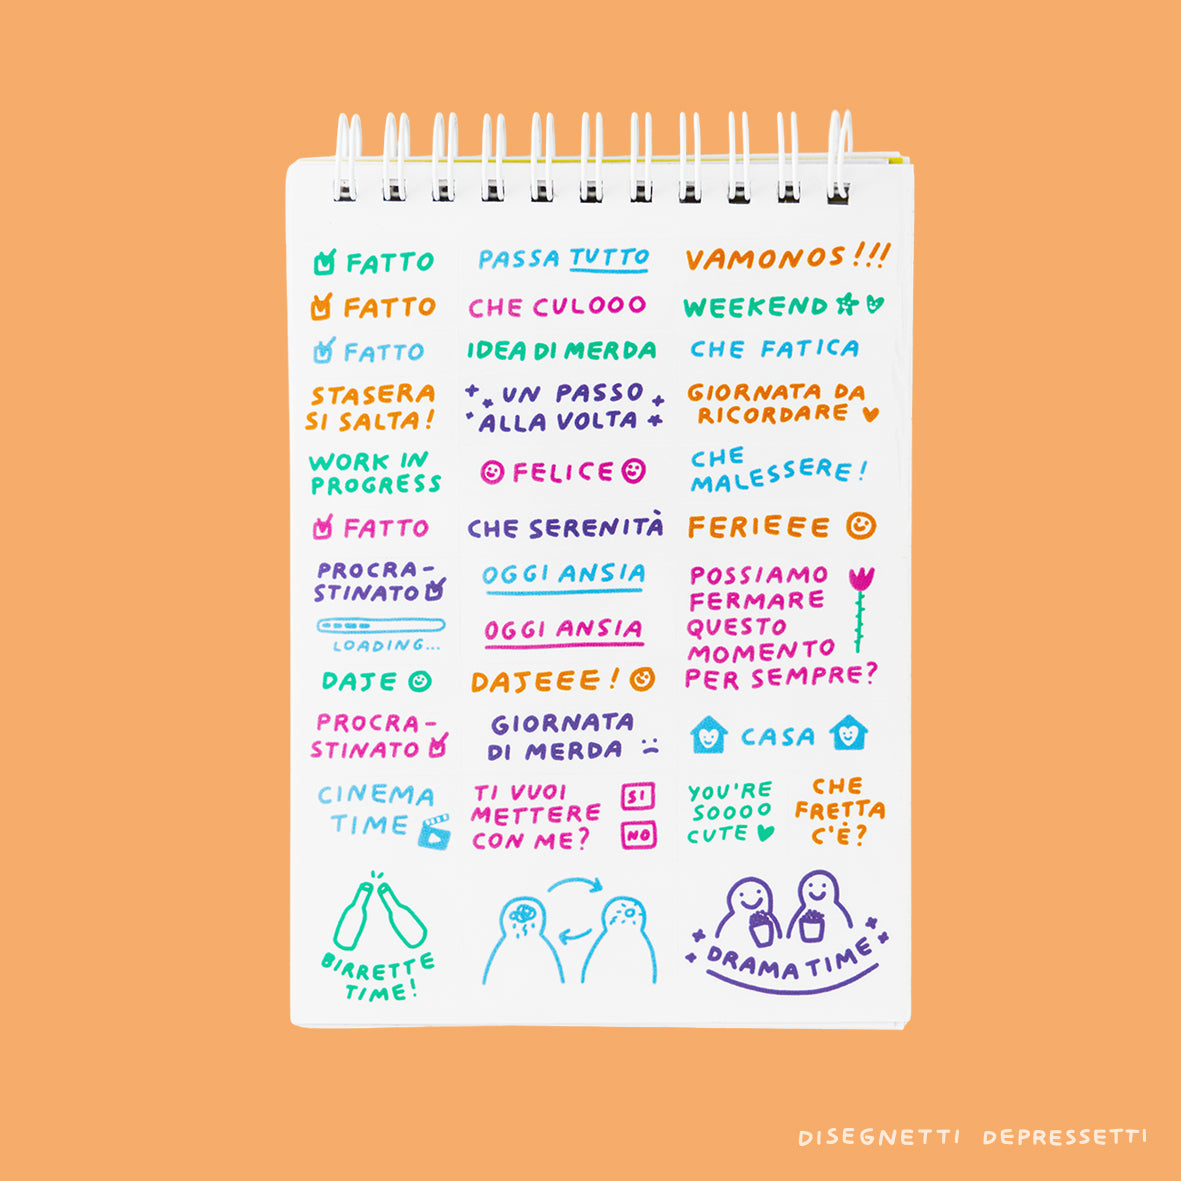 FATTO
FATTO
FATTO
STASERA
SI SALTA!
WORK IN
PROGRESS
FATTO
PROCRA-
STINATO
LOADING...
DAJE
PROCRA-
STINATO
CINEMA
TIME
BIRRETTE
TIME!
PASSA TUTTO
CHE CULOOO
IDEA DI MERDA
UN PASSO
ALLA VOLTA
FELICE
CHE SERENITÀ
OGGI ANSIA
OGGI ANSIA
DAJEEE!
GIORNATA
DI MERDA
TI VUOI
METTERE
CON ME?
SI
NO
VAMONOS!!!
WEEKEND
CHE FATICA
GIORNATA DA
RICORDARE
CHE
MALESSERE!
FERIEEE
POSSIAMO
FERMARE
QUESTO
MOMENTO
PER SEMPRE?
CASA
YOU'RE
SOOOO
CUTE
CHE
FRETTA
C'È?
DRAMA TIME
DISEGNETTI DEPRESSETTI